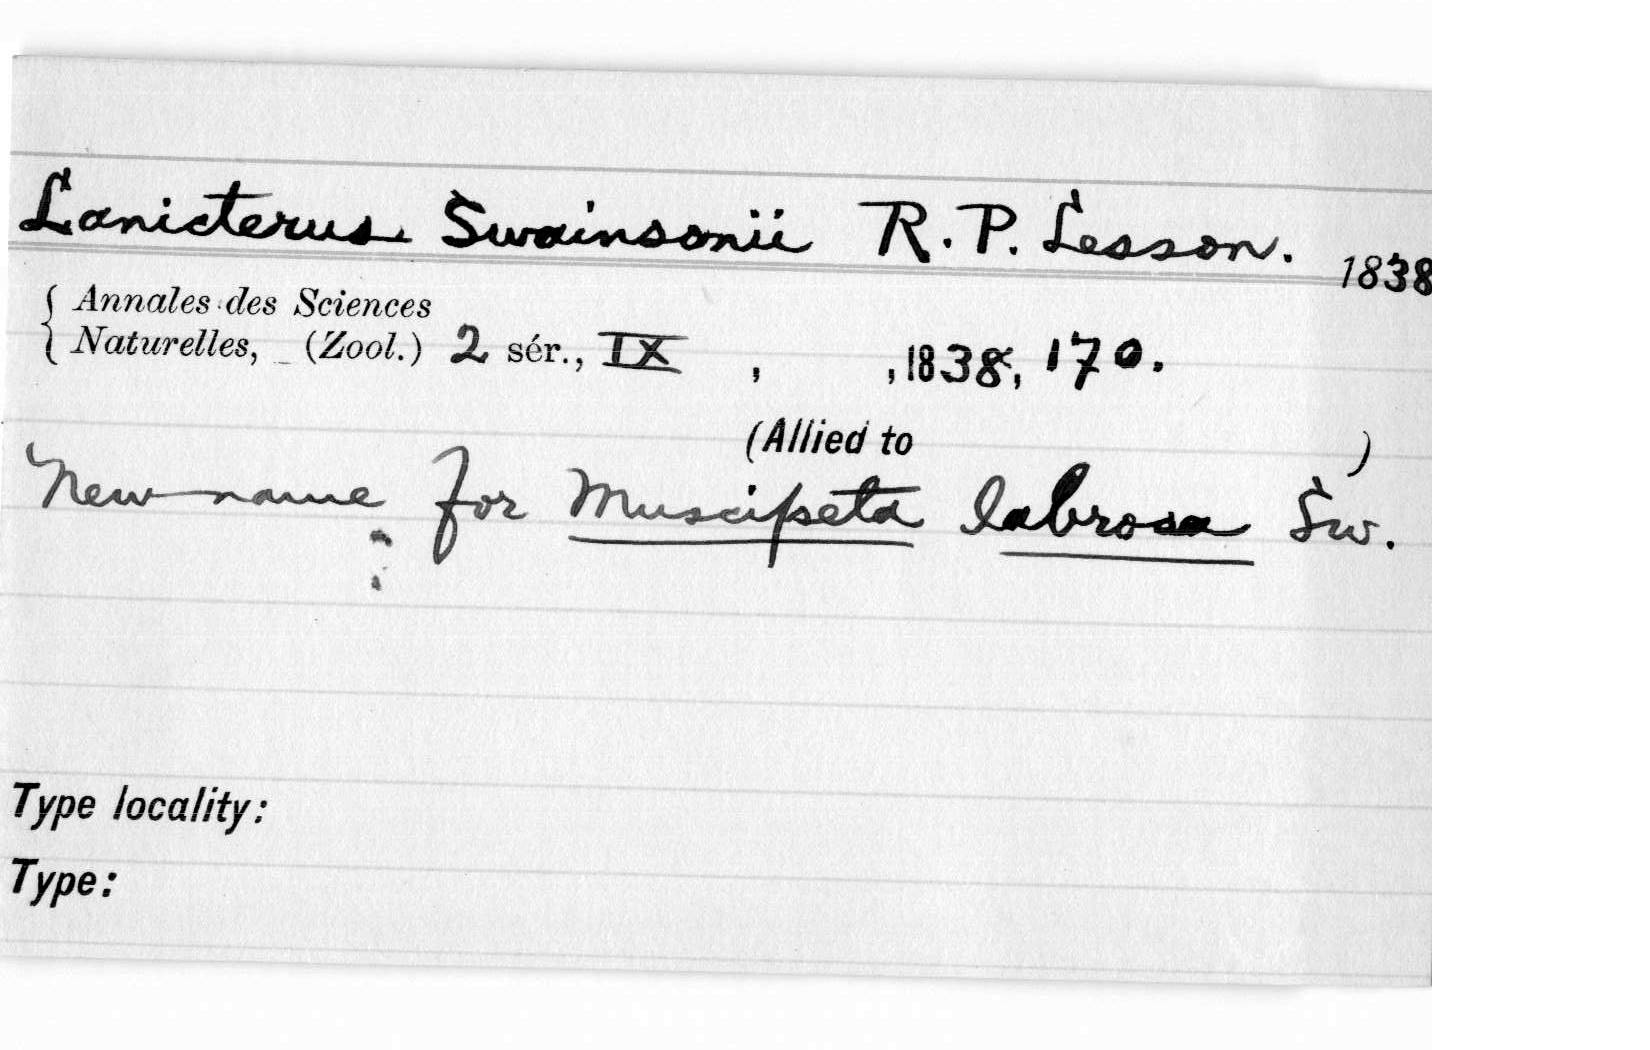 Lanicterus Swainsonii R. P. Lesson. 1838
{ Annales des Sciences
Naturelles, (Zool.) 2 sér., IX , , 1838, 170.
(Allied to )
New name for Muscipeta labrosa Sw.
Type locality:
Type: